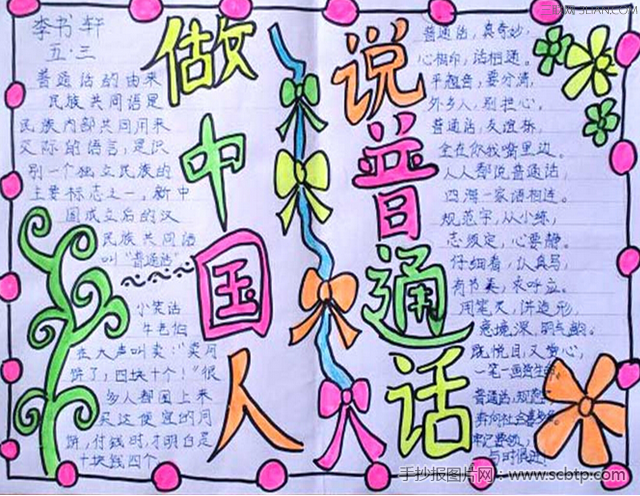 李书轩
五:三
普通话的由来
民族共同语是
民族内部共同用来
交际的语言,是识
别一个独立民族的
主要标志之一。新中
国成立后的汉
民族共同话
叫“普通话”
小笑话
在大声叫卖:“卖月
饼了,四块十个!”很
多人都围上来
买这便宜的月
饼,付钱时,才明白是
十块钱四个
做中国人
说普通话
普通话,真奇妙,
心相印,话相通。
平翘音,要分清,
外乡人,别担心,
普通话,友谊桥,
全在你我嘴里边。
人人都说普通话
四海一家语相连。
规范字,从小练,
志须定,心要静。
仔细看,认真写,
有节奏,求呼应。
用笔灵,讲造形,
意境深,
既悦目,又赏心,
一笔一画
普通话,规范
与时俱进
手抄报图片网:www.scbtp.com